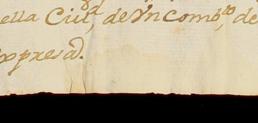 ella Ciu.d, de Yncomb.to, de
expresad.